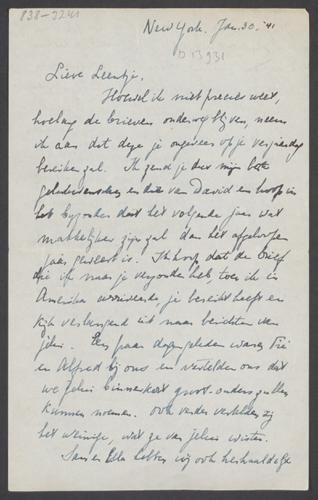 838-9241
New York. Jan. 30. '41
D 13931
Lieve Leentje.
Hoewel ik niet precies weet,
hoelang de brieven onderweg blijven, neem
ik aan dat deze je ongeveer op je verjaardag
bereiken zal. Ik zend je dus mijn beste
gelukwenschen en die van David en hoop in
het bijzonder dat het volgende jaar wat
makkelijker zijn zal dan het afgeloopen
jaar geweest is. Ik hoop, dat de brief
die ik naar je verzonden heb, toen ik in
Amerika arriveerde, je bereikt heeft en
kijk verlangend uit naar berichten van
jullie. Een paar dagen geleden waren
en Alfred bij ons en vertelden ons dat
we jullie binnenkort groot-ouders zullen
kunnen noemen. Ook verder vertelden zij
het weinige, wat ze van jullie wisten.
en Ella hebben wij ook herhaaldelijk